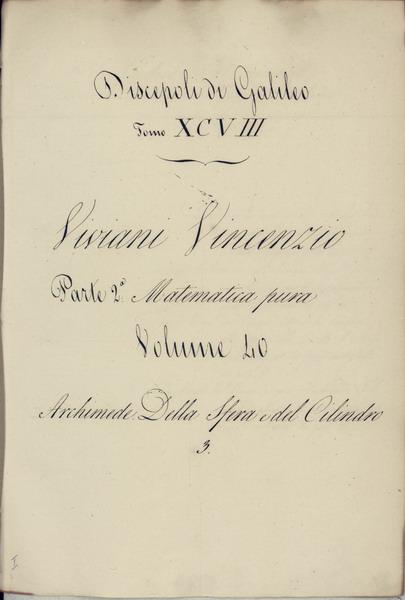 Discepoli di Galileo
Tomo XCVIII
Viviani Vincenzio
Parte 2ª Matematica pura
Volume 40
Archimede Della Sfera e del Cilindro
3.
I